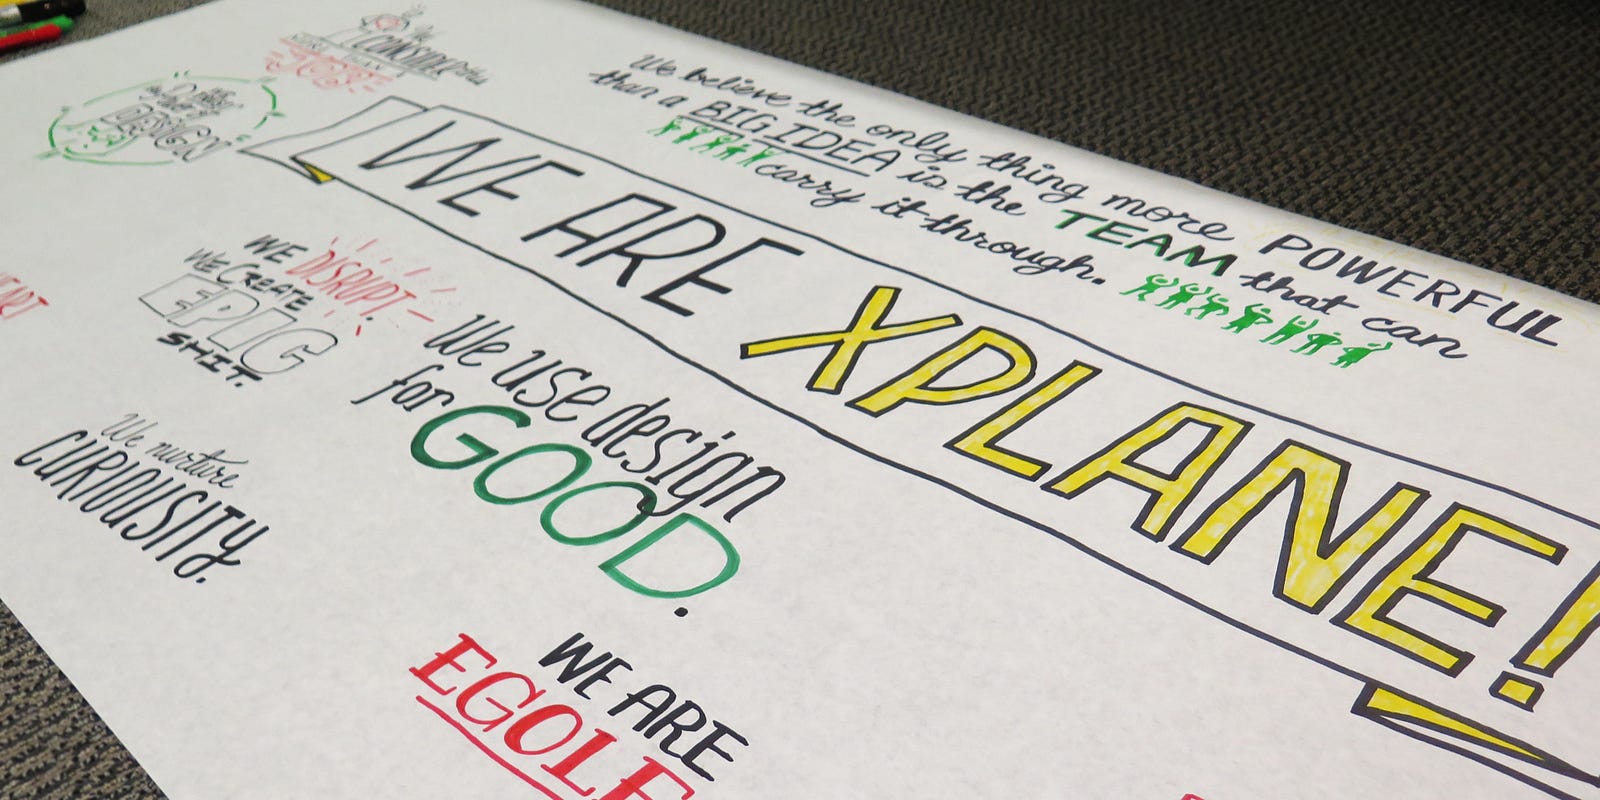 We believe the only thing more POWERFUL
than a BIG IDEA is the TEAM that can
carry it through.
WE ARE XPLANE!
DESIGN
WE DISRUPT.
WE CREATE
EPIC
SHIT.
We use design
for GOOD.
We nurture
CURIOSITY.
WE ARE
EGOLE